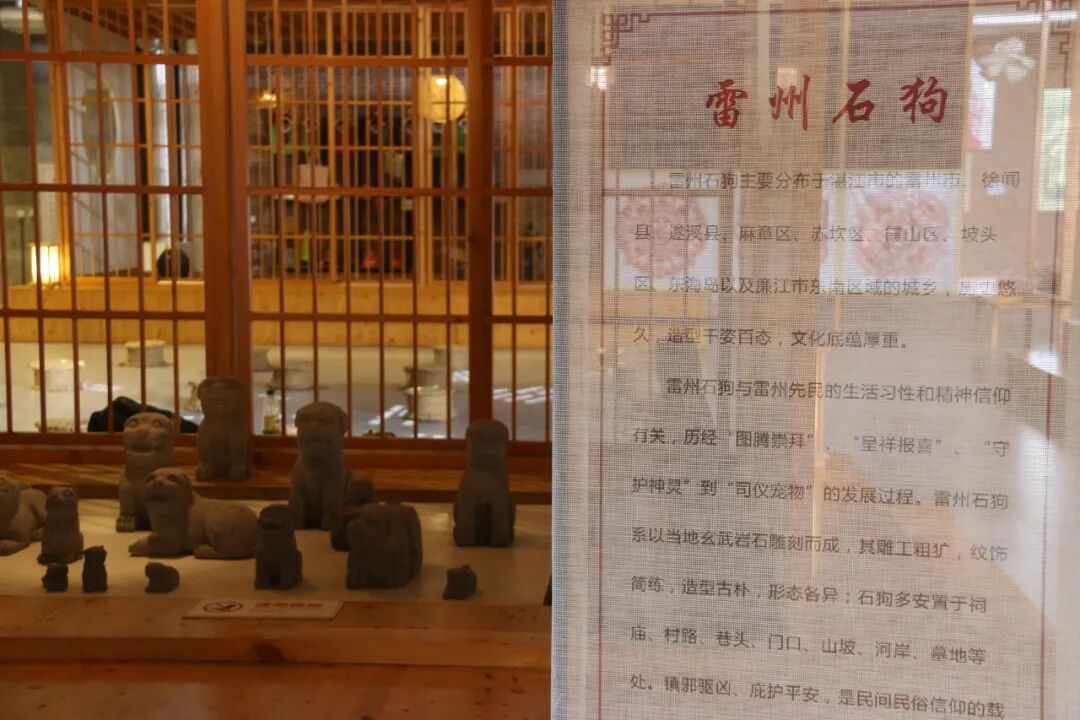 雷州石狗
雷州石狗主要分布于湛江市的雷州市、徐闻
县、遂溪县、麻章区、赤坎区、霞山区、坡头
区、东海岛以及廉江市东南区域的城乡，历史悠
久，造型千姿百态，文化底蕴厚重。
雷州石狗与雷州先民的生活习性和精神信仰
有关，历经“图腾崇拜”、“呈祥报喜”、“守
护神灵”到“司仪宠物”的发展过程。雷州石狗
系以当地玄武岩石雕刻而成，其雕工粗犷，纹饰
简练，造型古朴，形态各异；石狗多安置于祠
庙、村路、巷头、门口、山坡、河岸、墓地等
处。镇邪驱凶、庇护平安，是民间民俗信仰的载